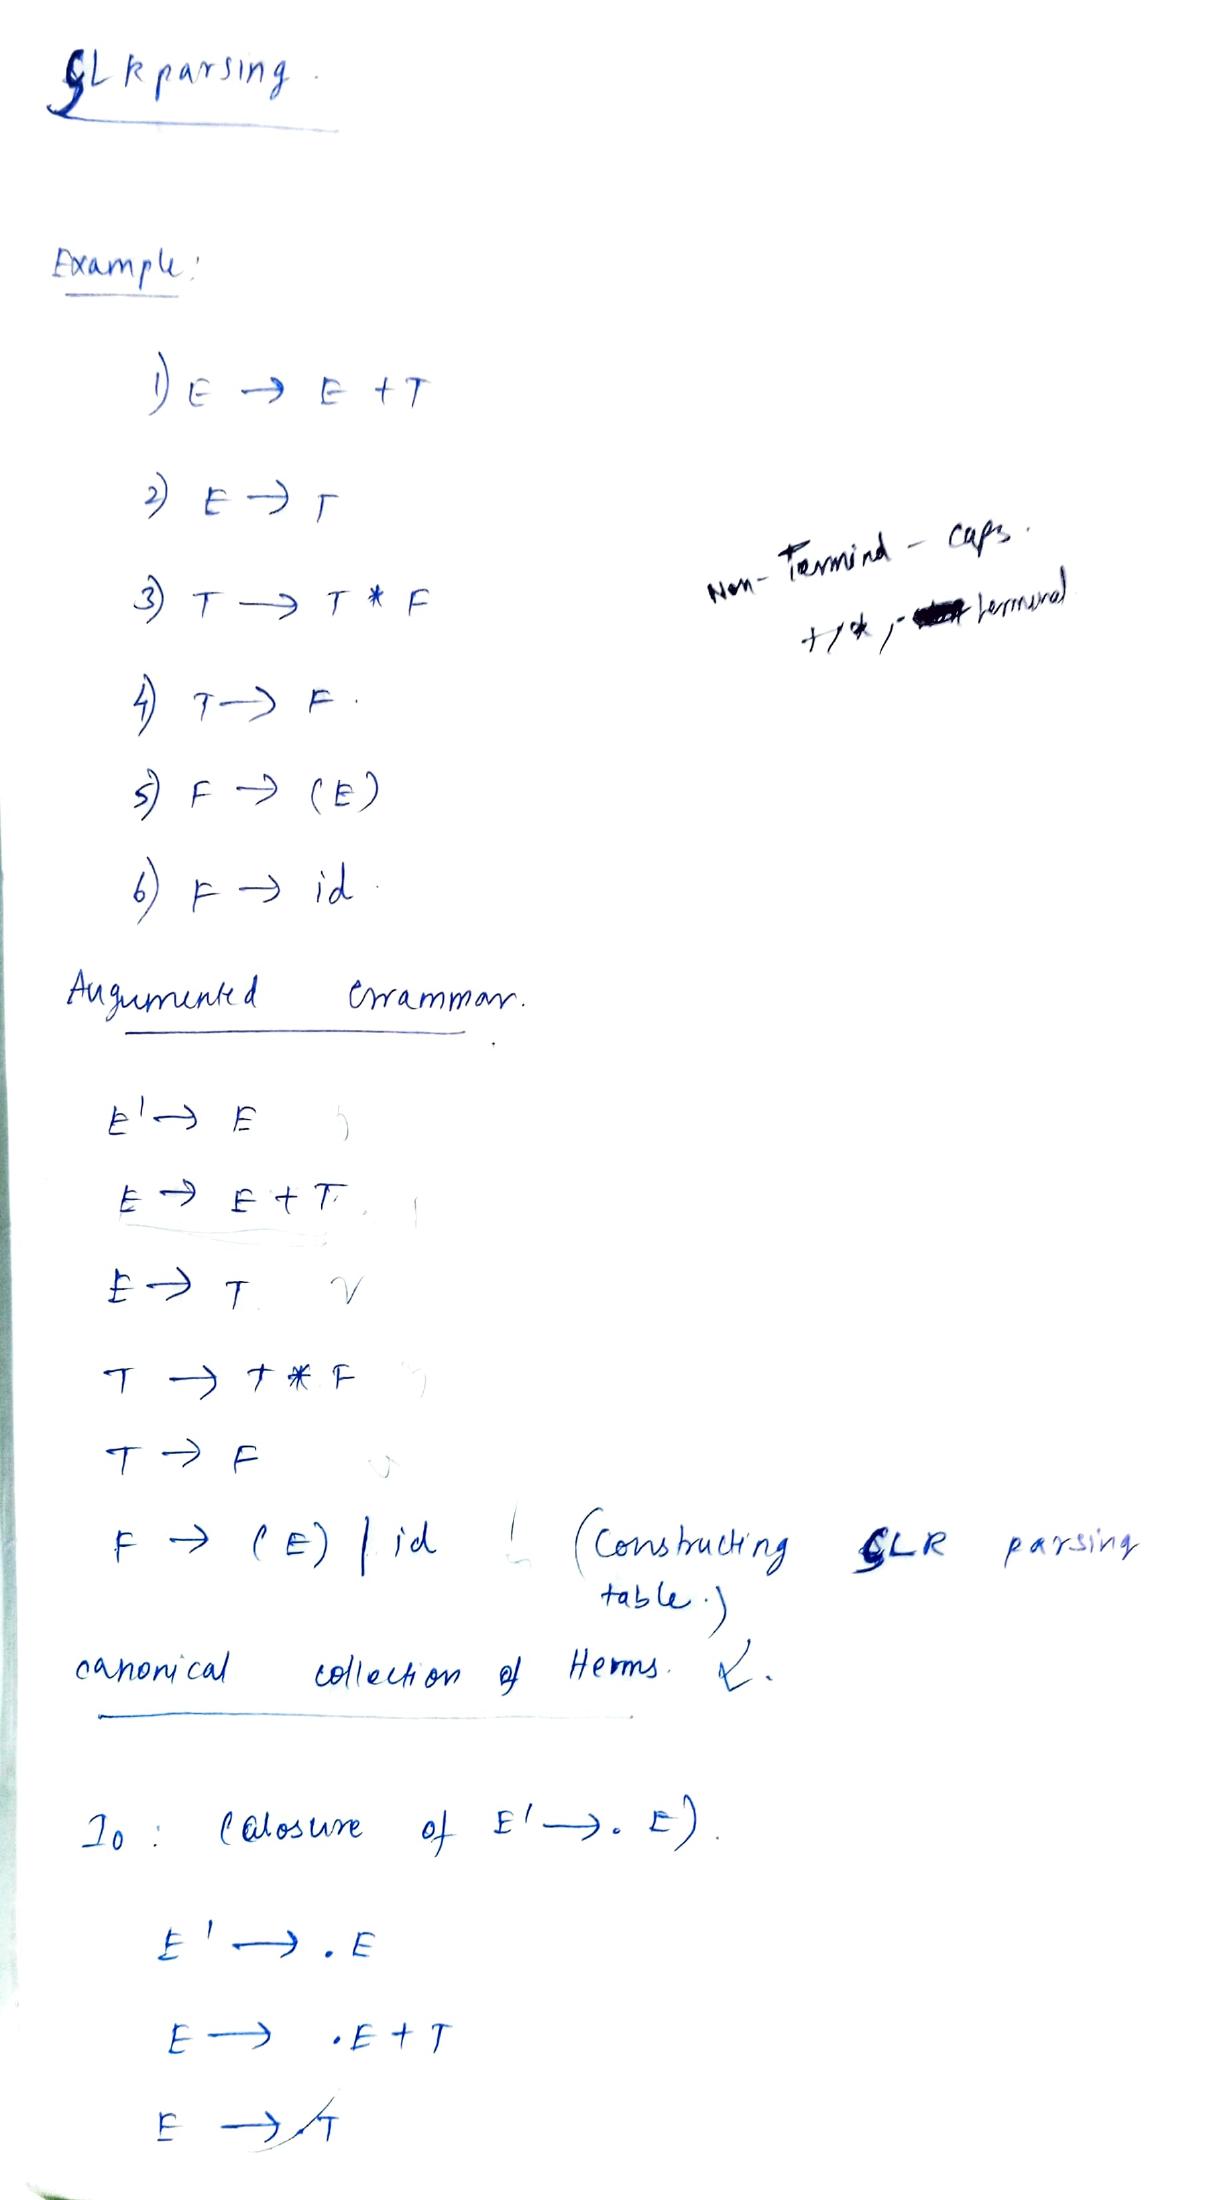 SLR parsing.
Example:
1) E → E + T
2) E → T
3) T → T * F
4) T → F.
5) F → (E)
6) F → id.
Non-Termind - caps.
+, *, - terminal
Augumented Grammar.
E' → E
E → E + T
E → T
T → T * F
T → F
F → (E) | id
(Constructing SLR parsing
table.)
canonical collection of Items.
I0 : (closure of E' → . E).
E' → . E
E → . E + T
E → . T